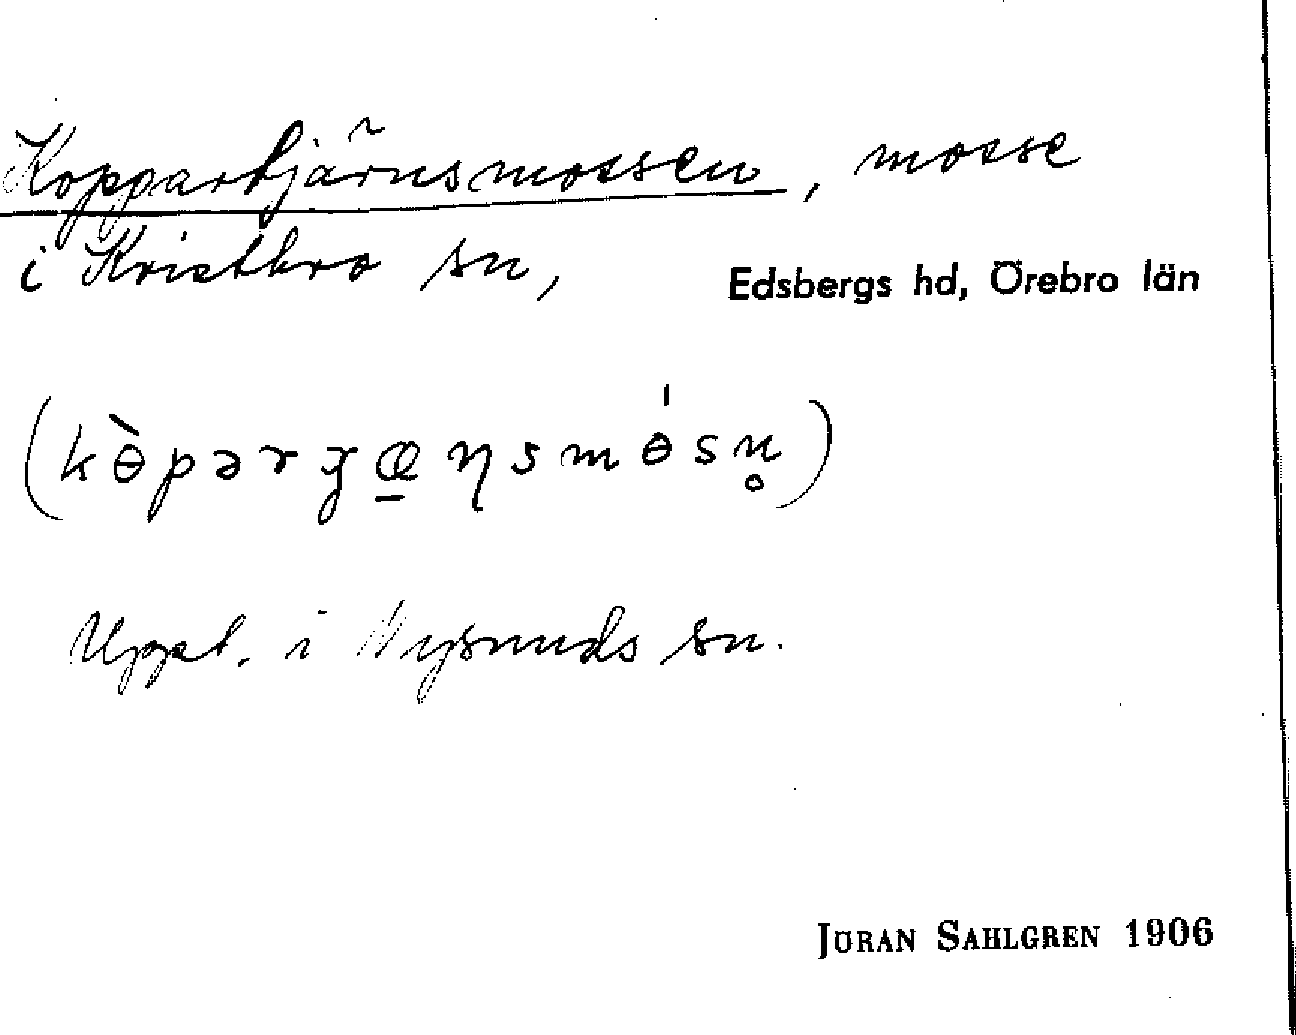 Koppartjärnsmossen, mosse
i Kristbro sn, Edsbergs hd, Örebro län
(kɵ̀pərχœ̲ηsmɵ́sn̥)
Uppt. i Nysunds sn.
JÖRAN SAHLGREN 1906